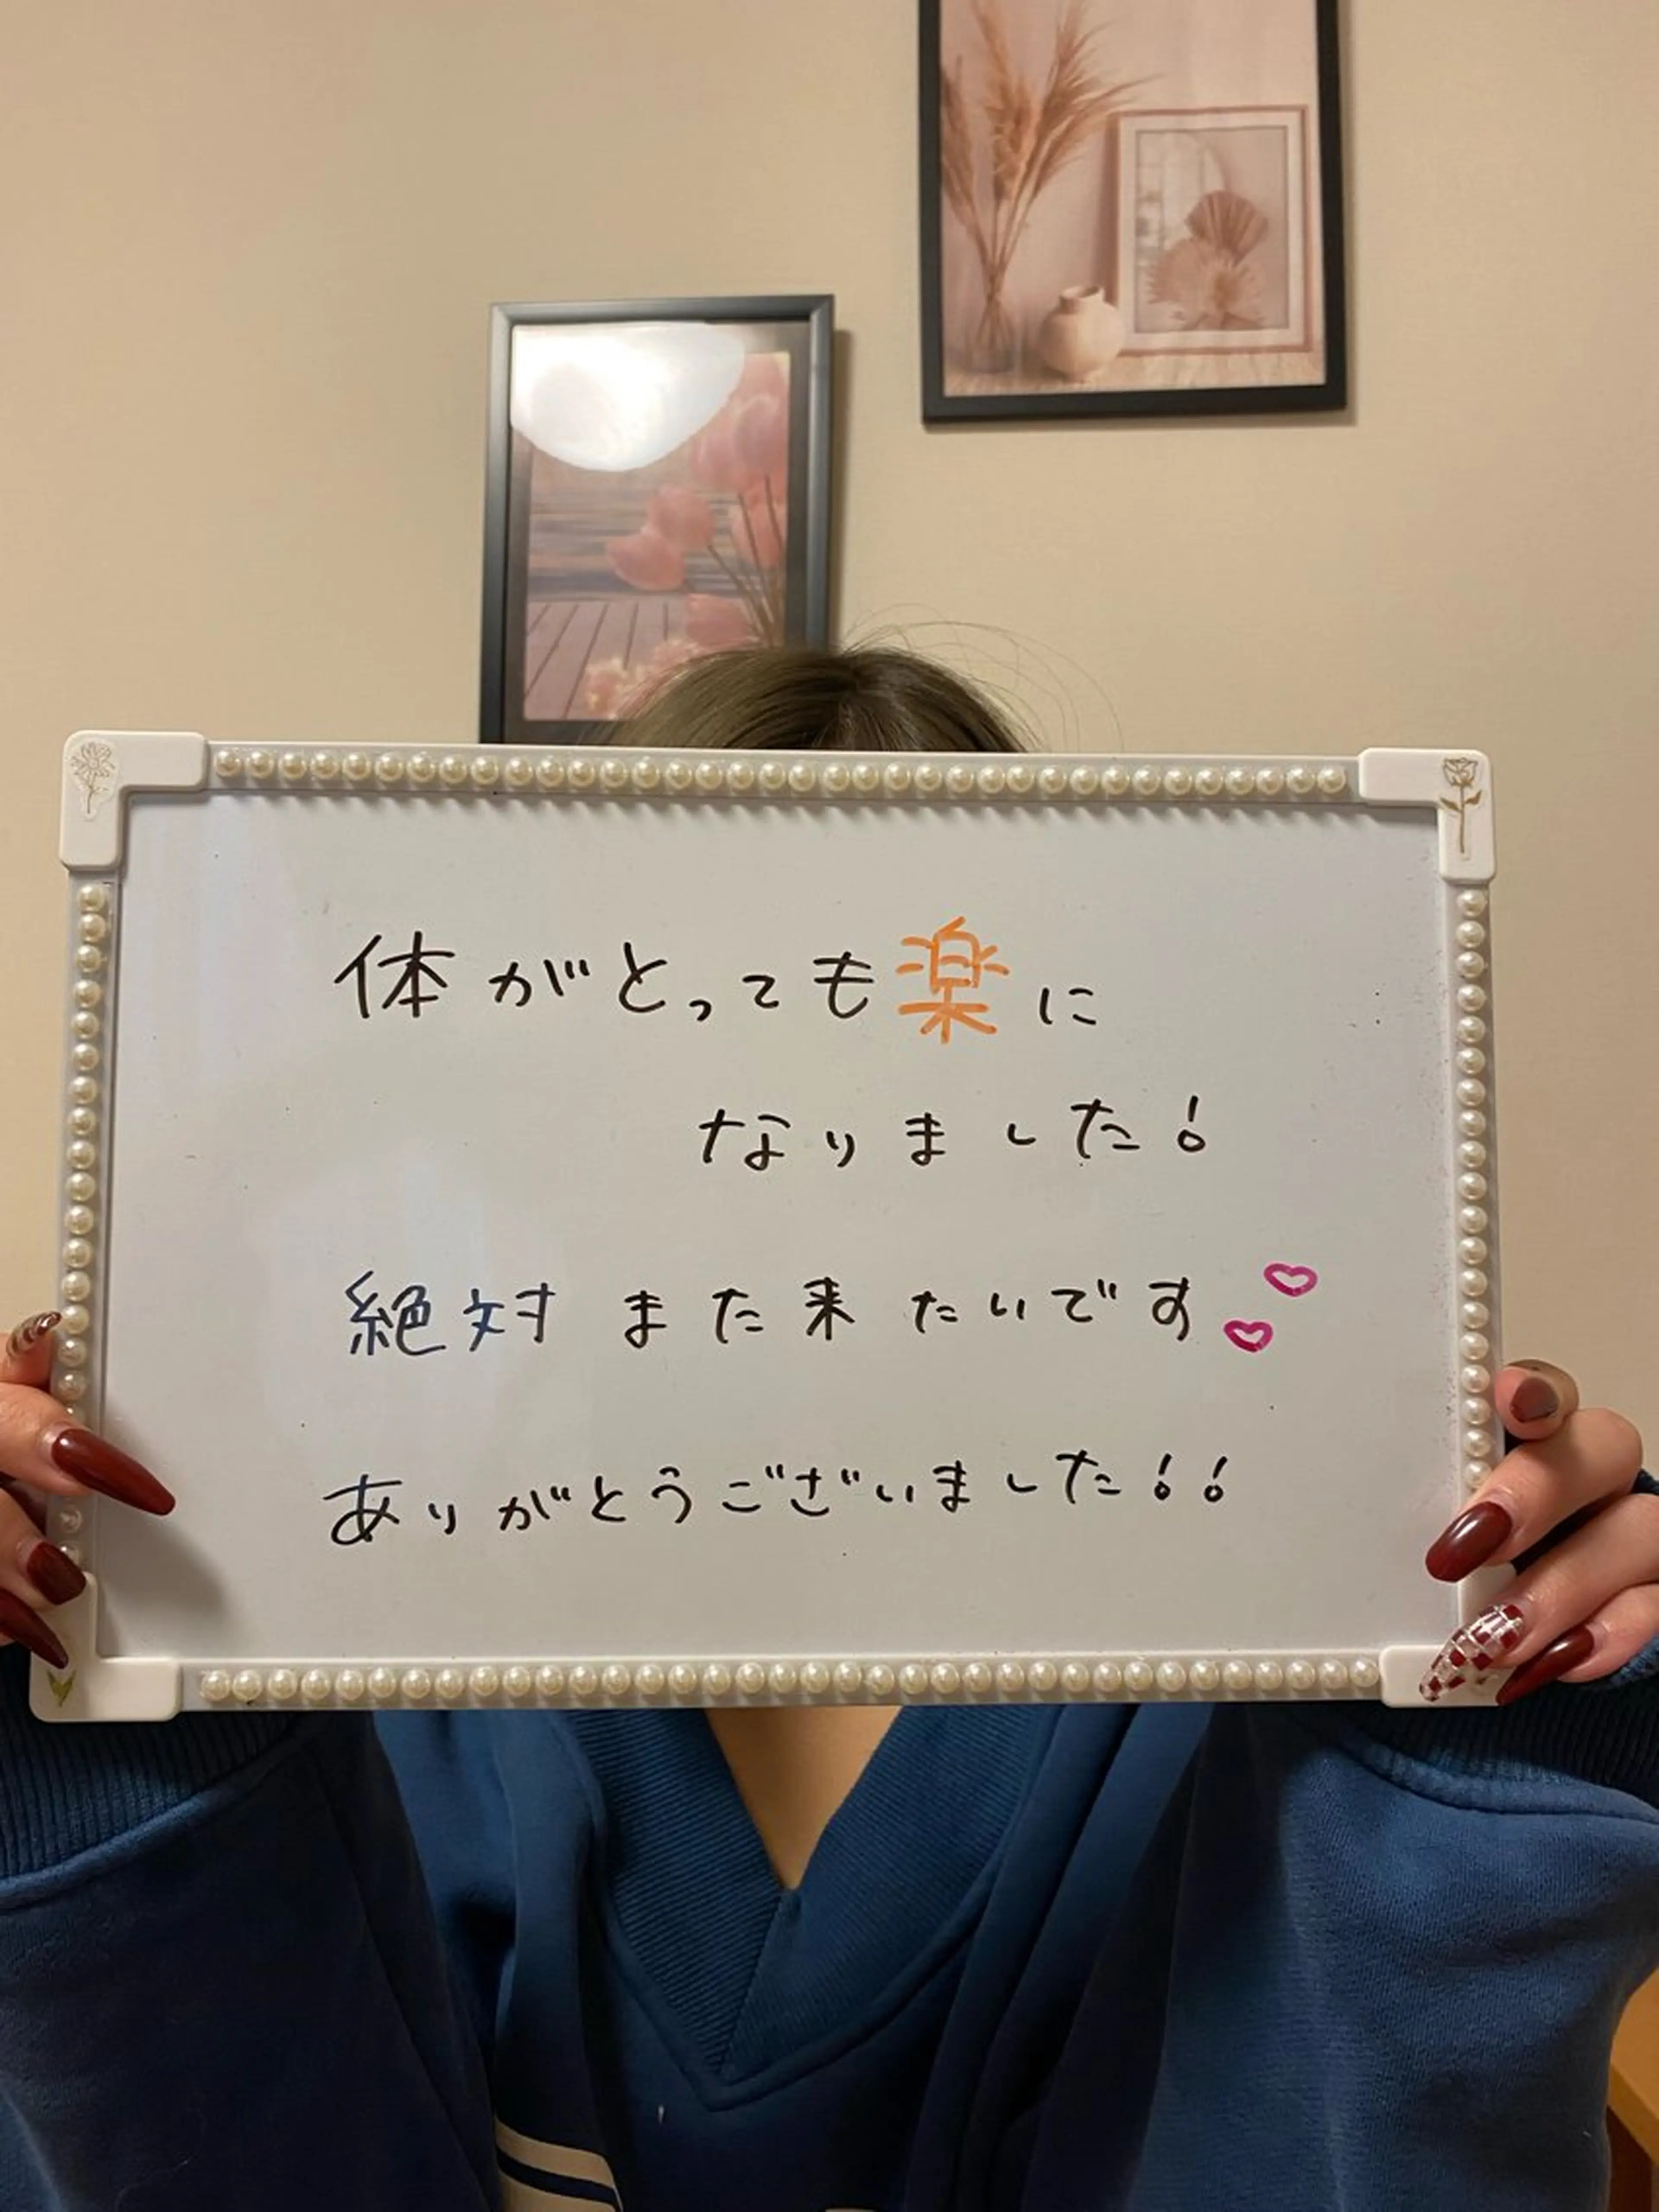 体がとっても楽に
なりました!
絶対また来たいです♡♡
ありがとうございました!!